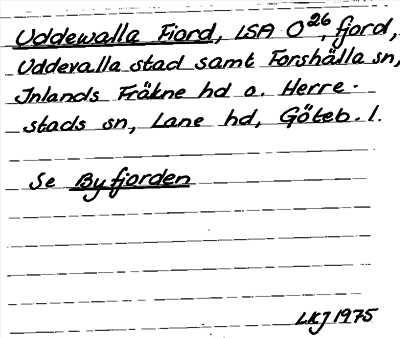 Uddewalla Fiord, LSA O26, fjord,
Uddevalla stad samt Forshälla sn,
Inlands Fräkne hd o. Herre-
stads sn, Lane hd, Göteb. l.
Se Byfjorden
LKJ 1975